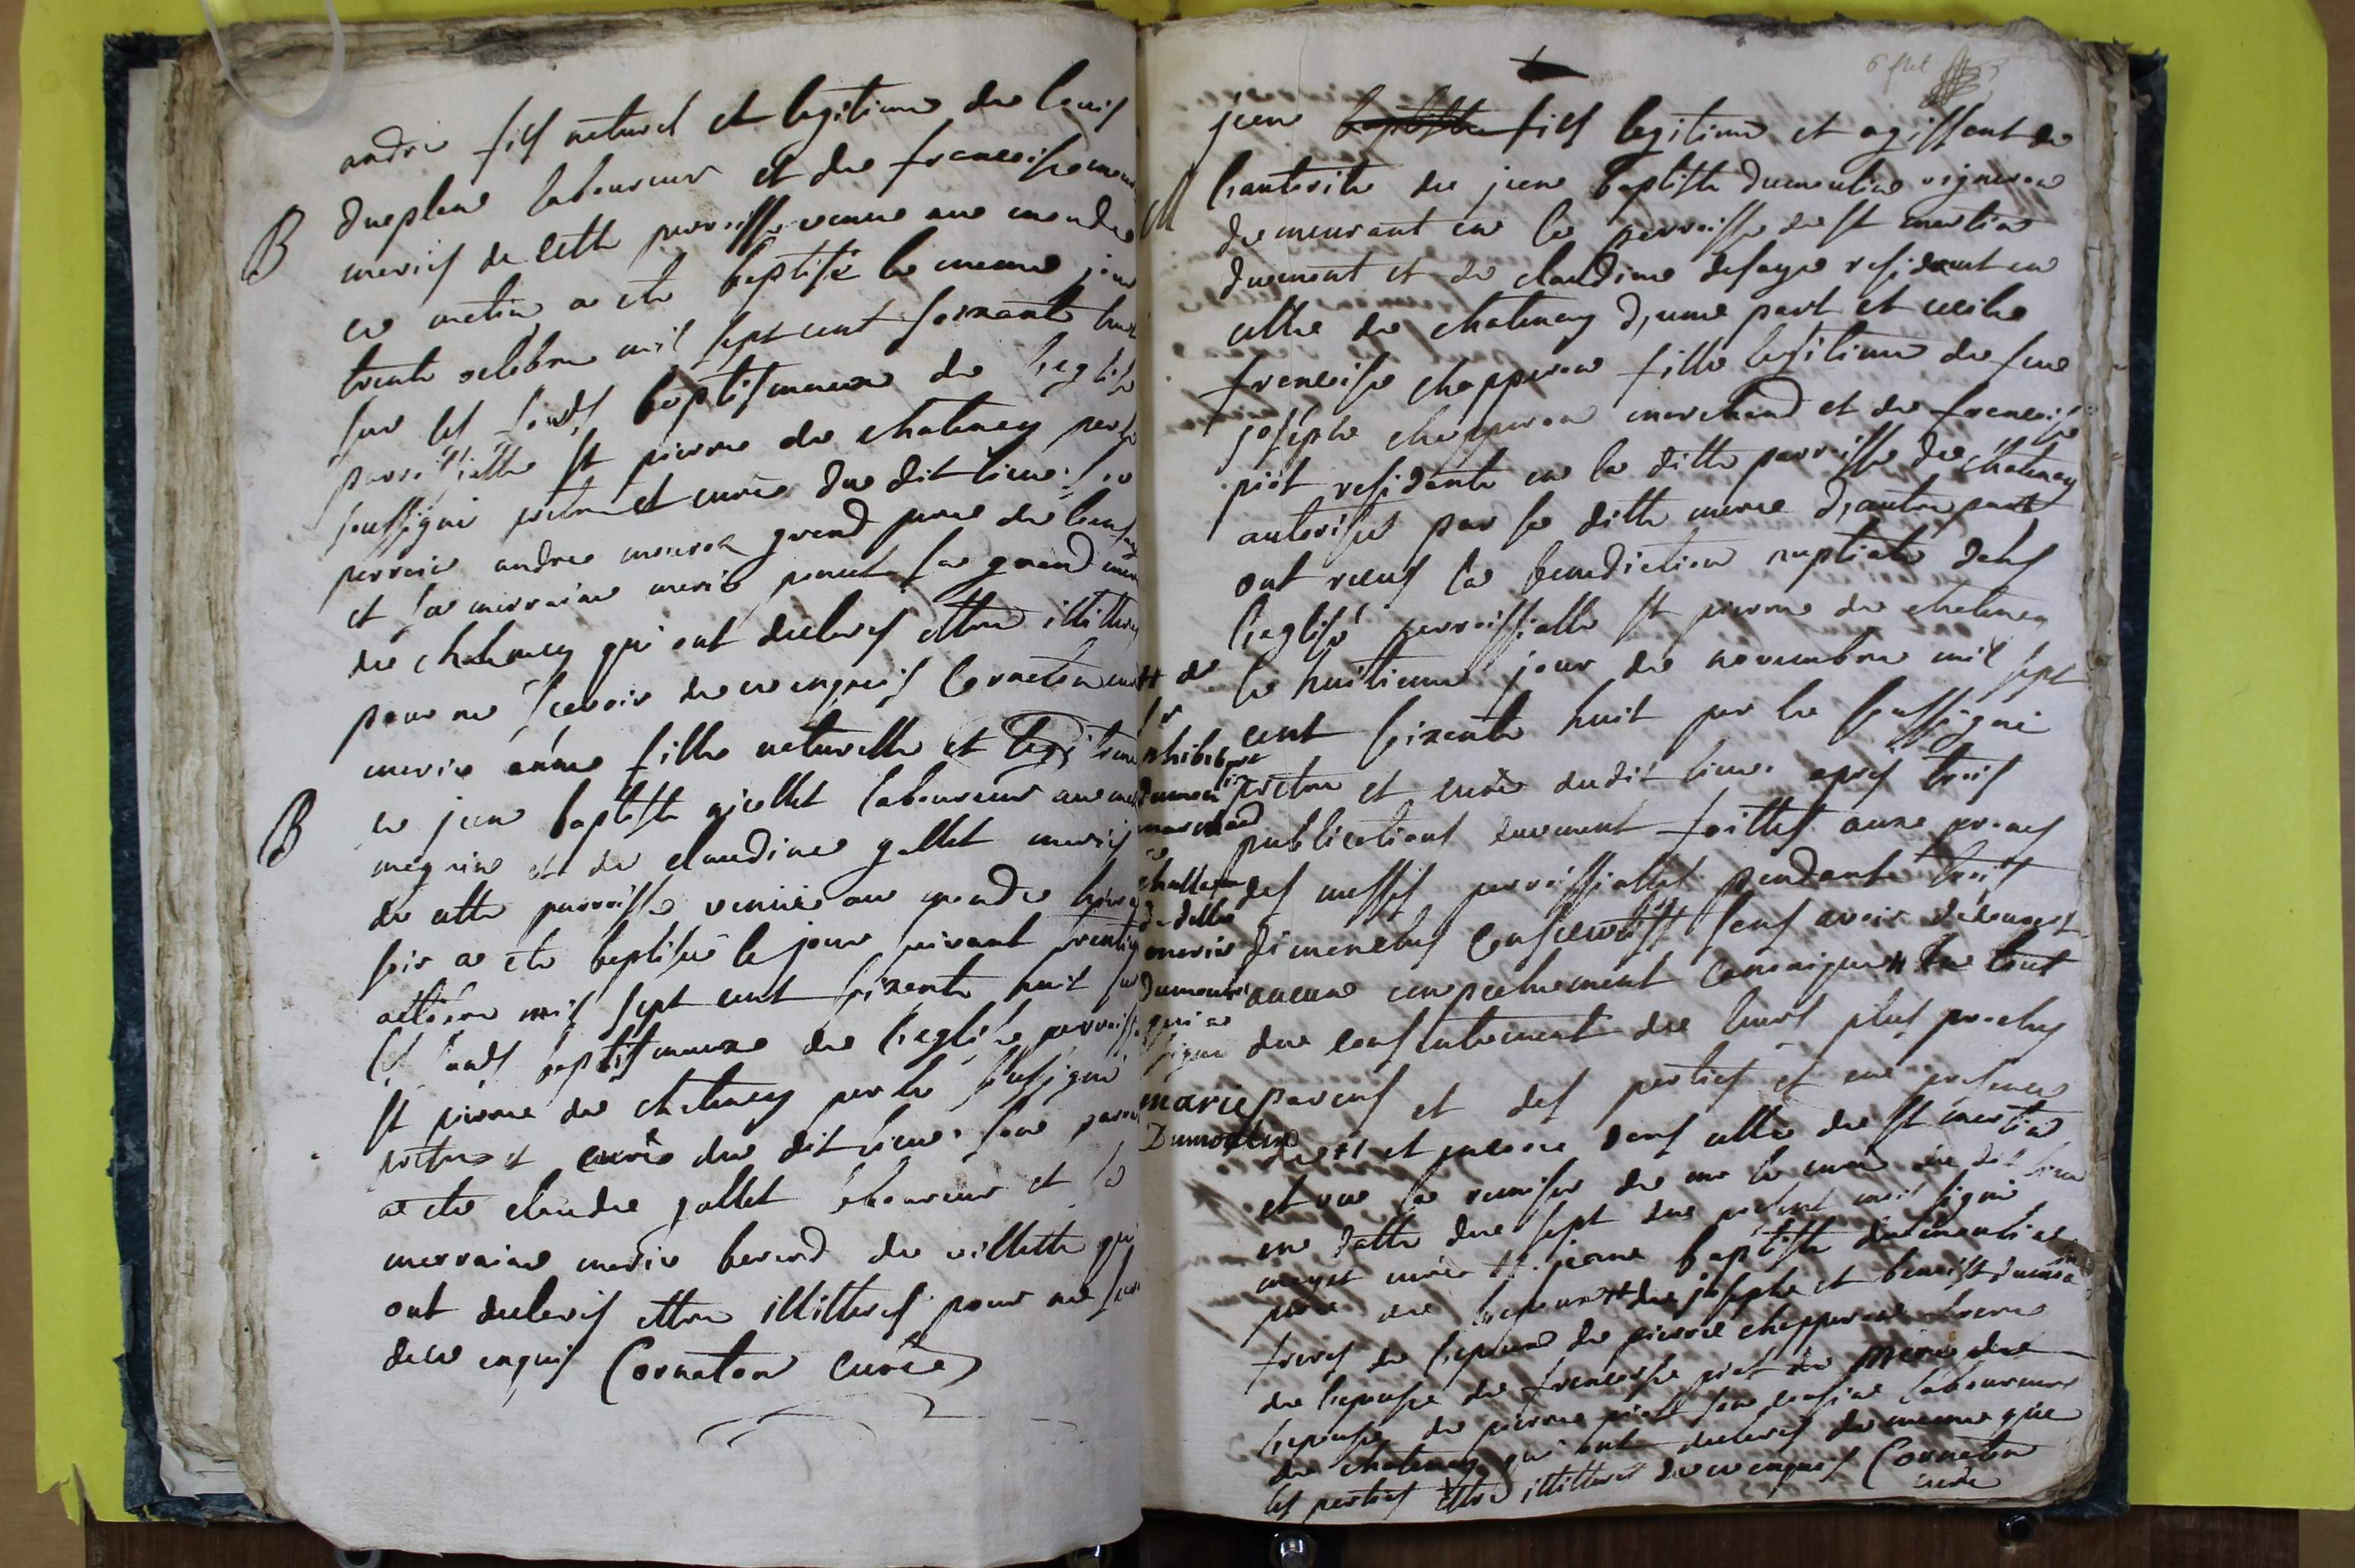 B
andre fils naturel et legitime de louis
duplan laboureur et de francoise
maries de cette parroisse venue au monde
ce matin a ete baptisé le meme jour
trente octobre mil sept cent soixante huit
sur les fonds baptismaux de l'eglise
parroissialle st pierre de chatenay par le
soussigné pretre et curé du dit lieu. son
parrain andre grand pere de l'enfant
et sa marraine marie sa grand mere
de chatenay qui ont declarés ettre illitteres
pour ne scavoir de ce enquis Cornaton curé
B
marie anne fille naturelle et legitime
de jean baptiste laboureur au
et de claudine gallet maries
de cette parroisse venue au monde hier
soir a ete baptisée le jour suivant trente
octobre mil sept cent soixante huit sur
les fonds baptismaux de l'eglise parroiss
st pierre de chatenay par le soussigné
pretre et curé du dit lieu. son parrain
a ete claude gallet laboureur et sa
marraine marie berard de villette qui
ont declarés ettre illitteres pour ne scav
de ce enquis Cornaton curé
M
jean baptiste fils legitime et agissant de
l'autorite de jean baptiste dumoulin vigneron
demeurant en la parroisse de st martin
dumont et de claudine resident en
celle de chatenay d'une part et
francoise chapperon fille legitime de feu
josephe chapperon marchand et de francoise
piot residente en la ditte parroisse de chatenay
autorisée par sa ditte mere d'autre part
ont recus la benediction nuptiale dans
l'eglise parroissialle st pierre de chatenay
le huitieme jour de novembre mil sept
cent soixante huit par le soussigné
pretre et curé dudit lieu. apres trois
publications duement faittes aux prones
des messes parroissialles pendant trois
dimanches consecutifs sans avoir decouvert
aucun empechement canonique # du tout
du consentement de leurs plus proches
parens et des parties et en presence
de et encore dans celle de st martin
et vue la remise de mr le curé du dit lieu
en datte du sept du present mois signé
curé # jean baptiste dumoulin
pere de l'epoux # de josephe et benoist dumoulin
freres de l'epoux de pierre chapperon frere
de l'epouse de francoise piot mere de
l'epouse de pierre piot son cousin laboureur
de chatenay qui ont declarés de meme que
les parties ettre illitteres de ce enquis Cornaton
curé
# de
sr
philibert
dumoulin
marchand
a
de delle
marie
dumoulin
qui a
signé
marie
Dumoulin